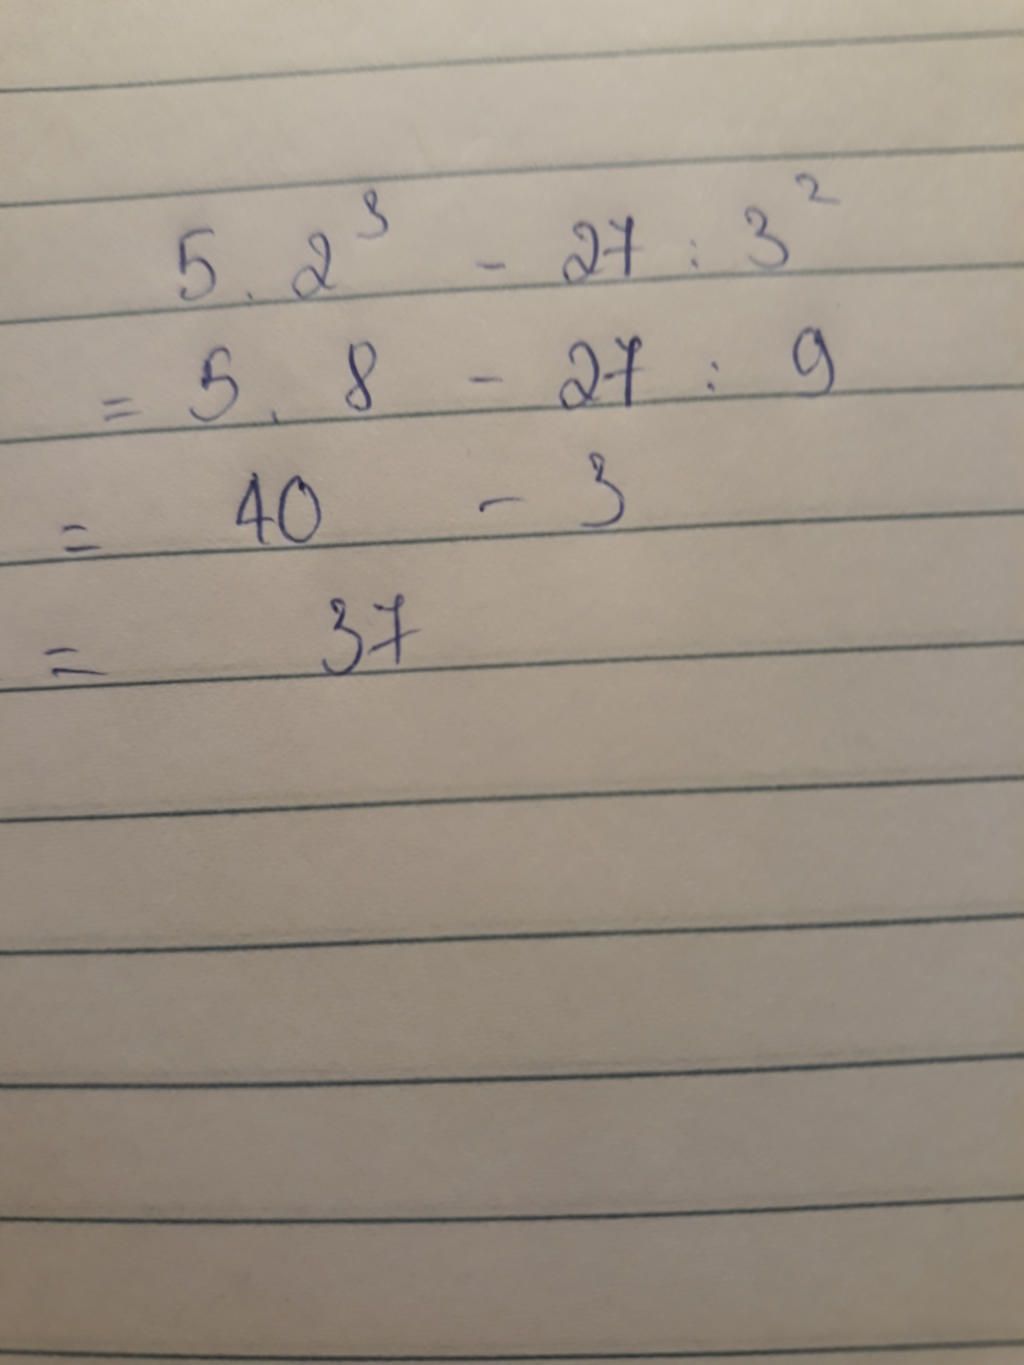 5 . 2³ - 27 : 3²
= 5 . 8 - 27 : 9
= 40 - 3
= 37